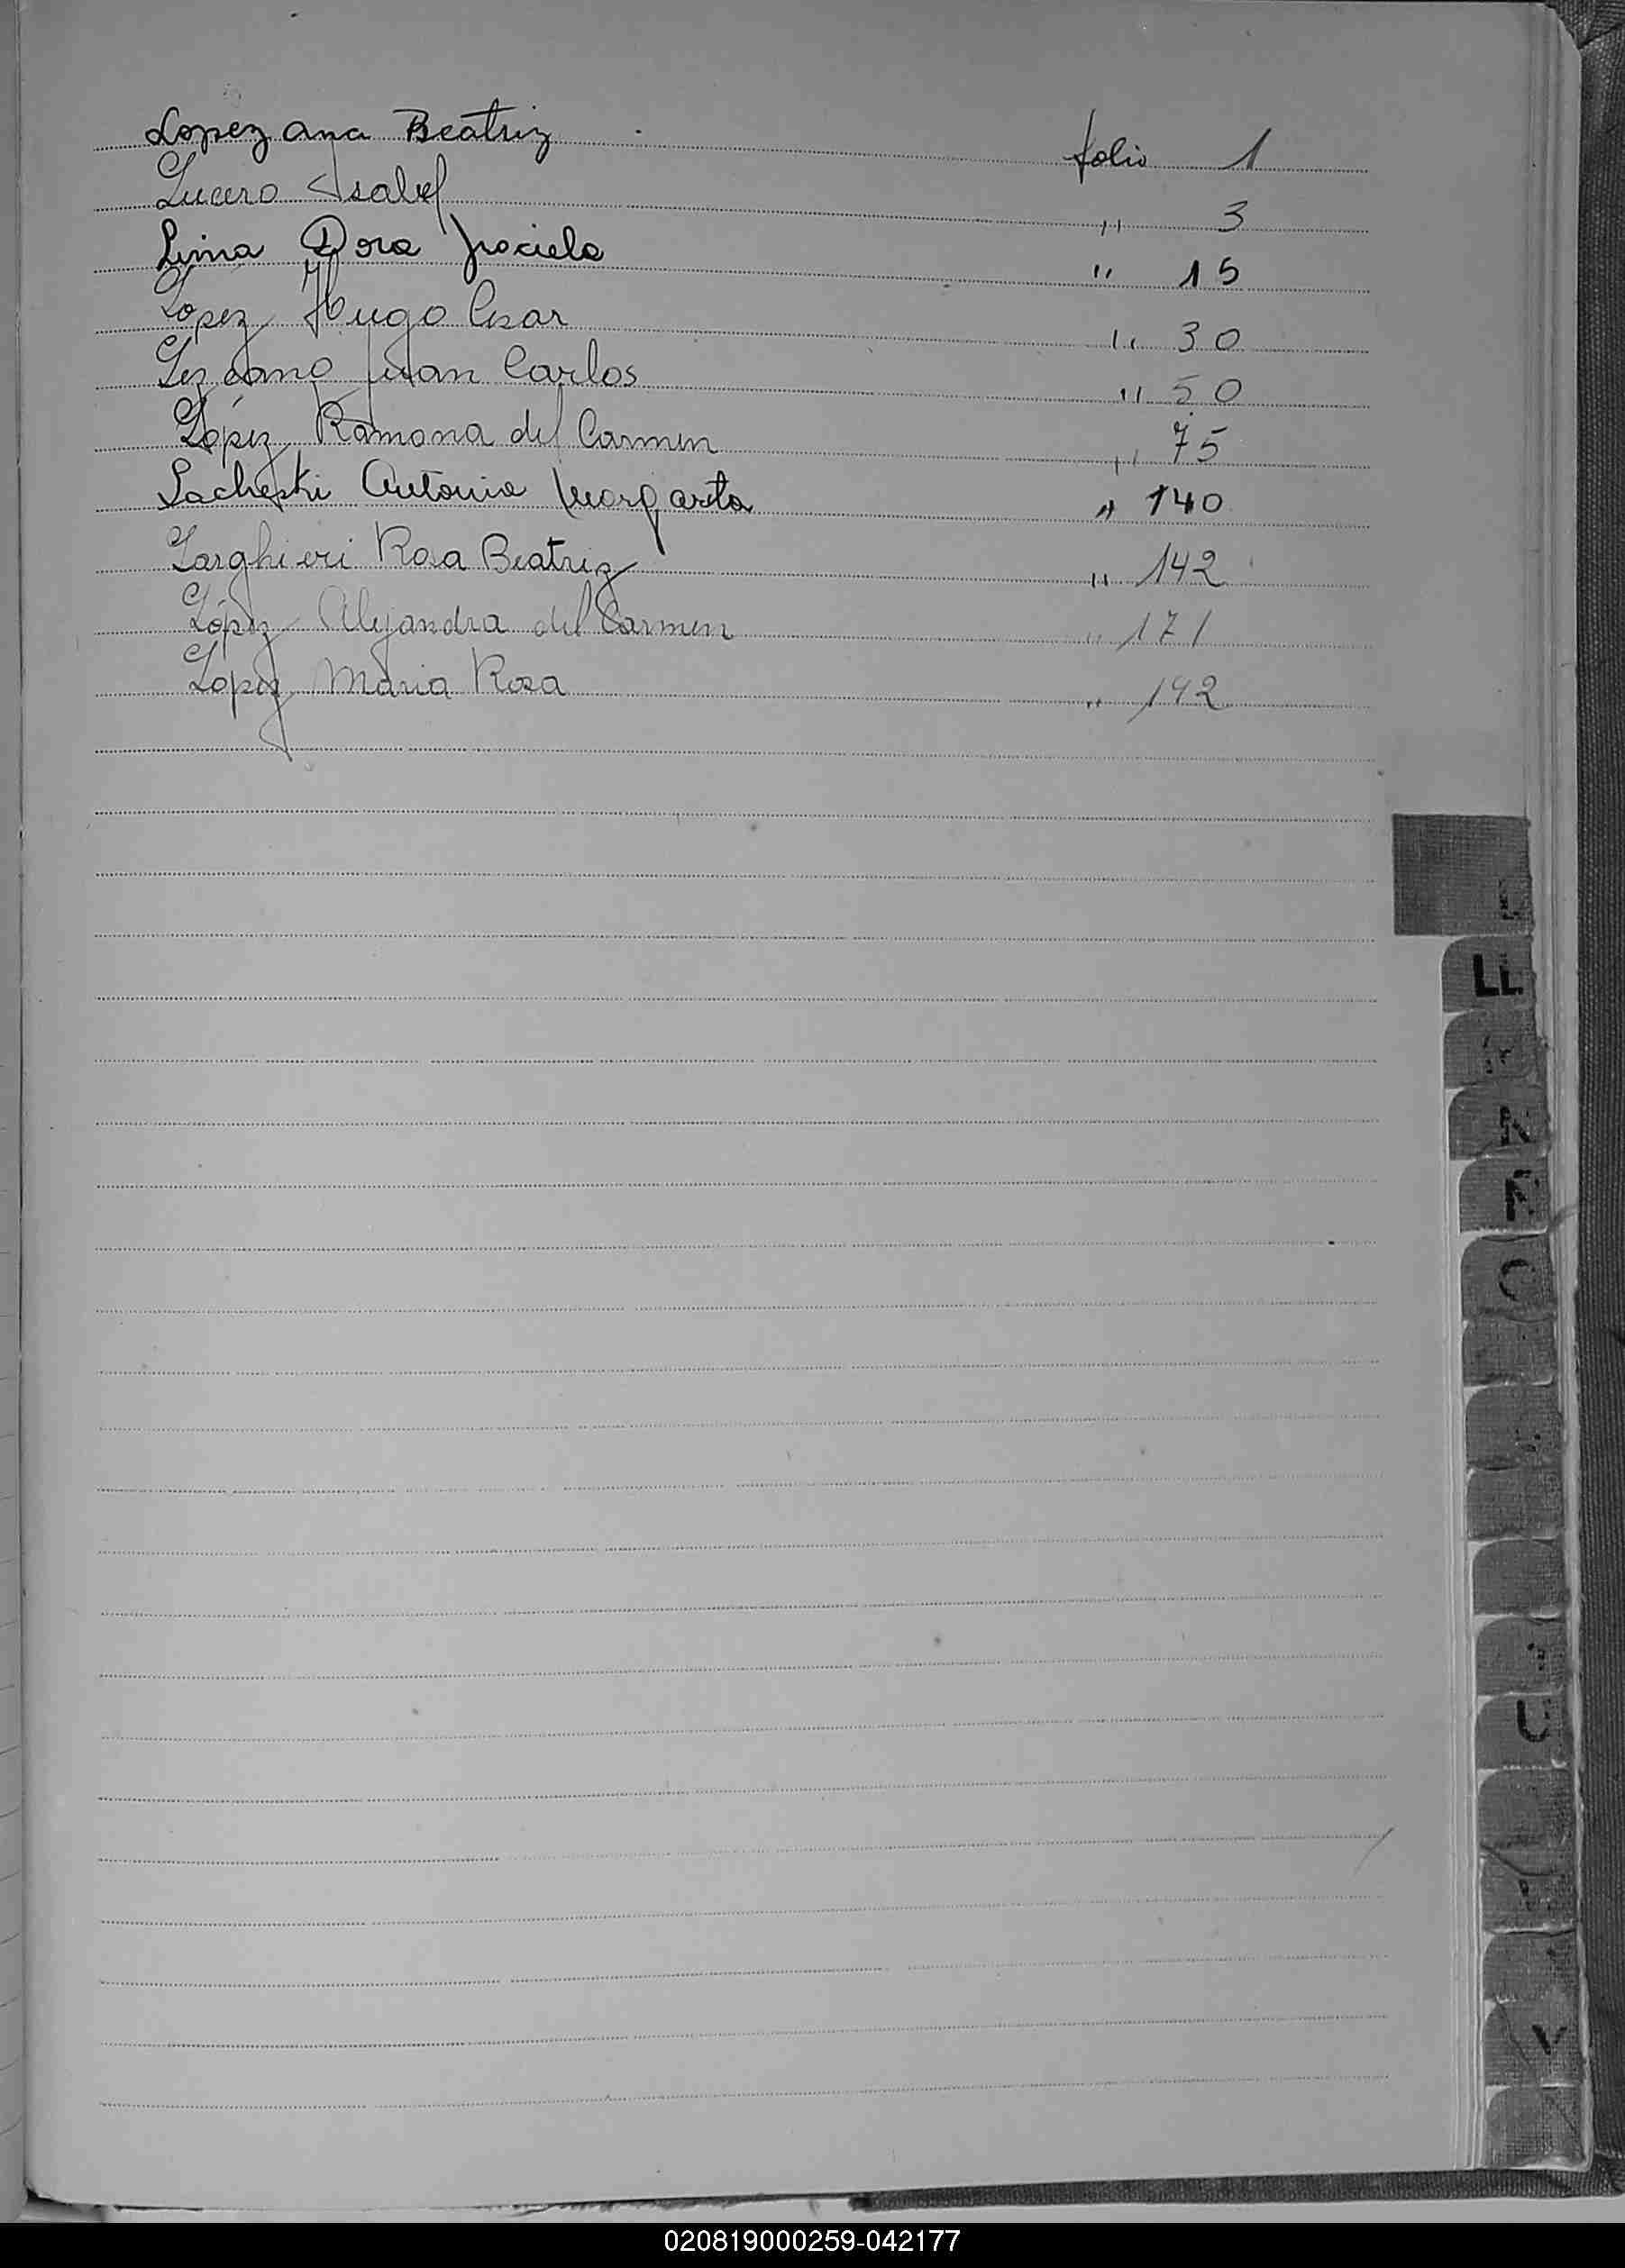 Lopez Ana Beatriz folio 1
Lucero Isabel " 3
Lima Dora Graciela " 15
Lopez Hugo Cesar " 30
Lezcano Juan Carlos " 50
López Ramona del Carmen " 75
Lacheski Antonia Margarita " 140
Larghieri Rosa Beatriz " 142
López Alejandra del Carmen " 171
Lopez Maria Rosa " 192
LL
N
U
V
020819000259-042177